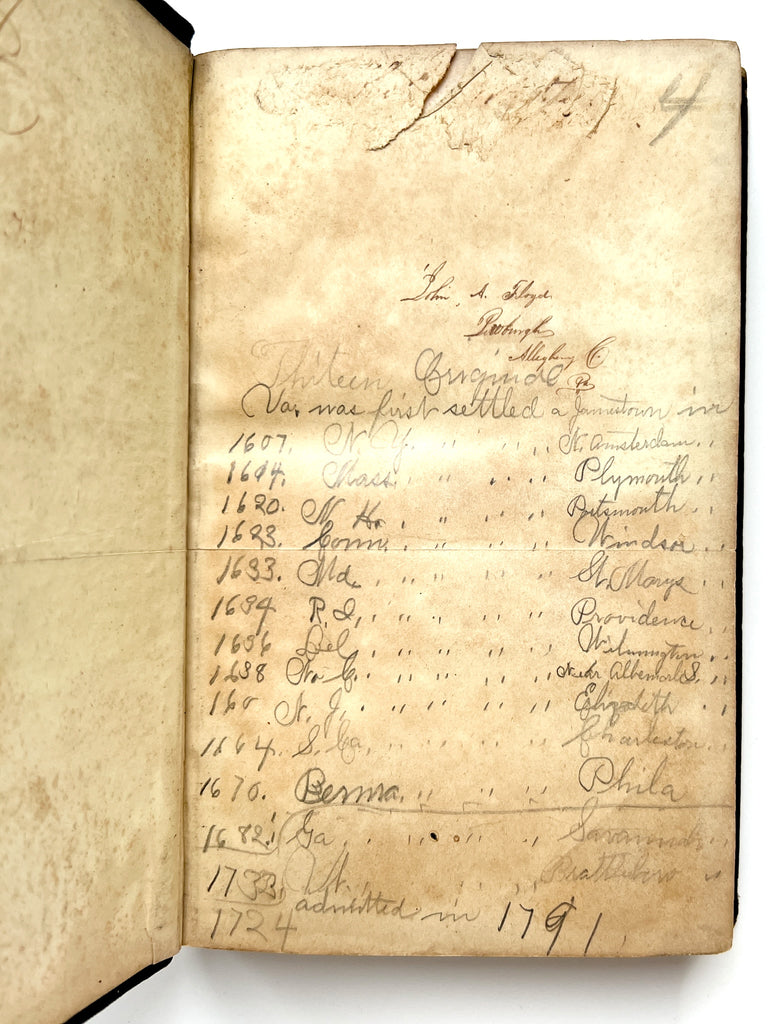 4
John A. Floyd
Allegheny C.
Pa
Thiteen Original
Va. was first settled a Jamestown in
1607. N. Y. " " " N. Amsterdam "
1614. Mass. " " " " Plymouth "
1620. N. H. " " " Portsmouth "
1623. Conn. " " " Windsor "
1633. Md. " " " " St. Marys "
1634 R. I. " " " " Providence "
1636 Del " " " " Wilmington "
1638 No. C. " " " " Near Albemarle S. "
160 N. J. " " " " Elizabeth "
1664. S. Ca. " " " " Charleston "
1670. Penna. " " " Phila
1682. Ga " " " " Savannah "
1733. Vt. " " " " Brattleboro "
1724 admitted in 1791.